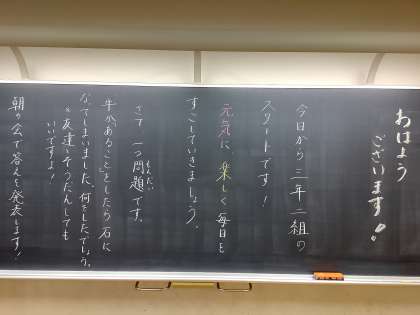 おはよう
ございます!
今日から三年二組の
スタートです!
元気に楽しく毎日も
すごしていきましょう。
さて、一つ問題です。
もんだい
牛が「あること」をしたら石に
なってしまいました。何をしたでしょう。
※友達とそうだんしても
いいですよ!
朝の会で答えを発表します!